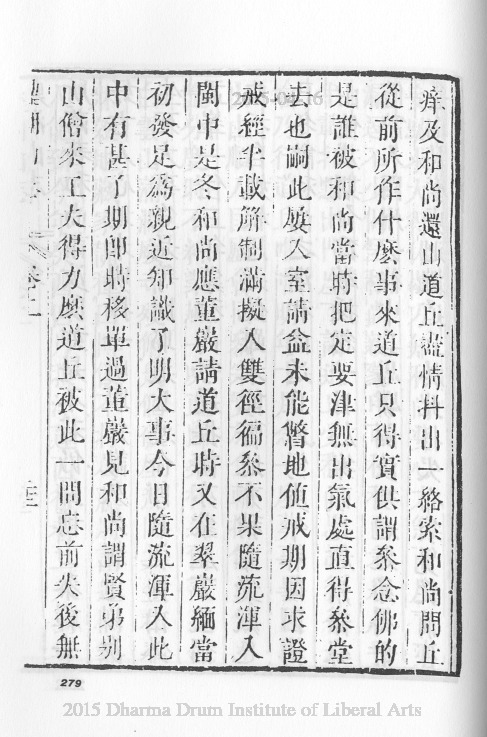 痒及和尚還山道丘盡情抖出一絡索和尚問丘
從前所作什麽事來道丘只得實供謂叅念佛的
是誰被和尚當時把定要津無出氣處直得叅堂
去也嗣此屢入室請益未能瞥地値戒期因求證
戒經半載解制滿擬入雙徑徧叅不果隨流渾入
閩中是冬和尚應董巖請道丘時又在翠巖緬當
初發足爲親近知識了明大事今日隨流渾入此
中有甚了期即時移單過董巖見和尚謂賢弟別
山僧來工夫得力麽道丘被此一問忘前失後無
279
2015 Dharma Drum Institute of Liberal Arts